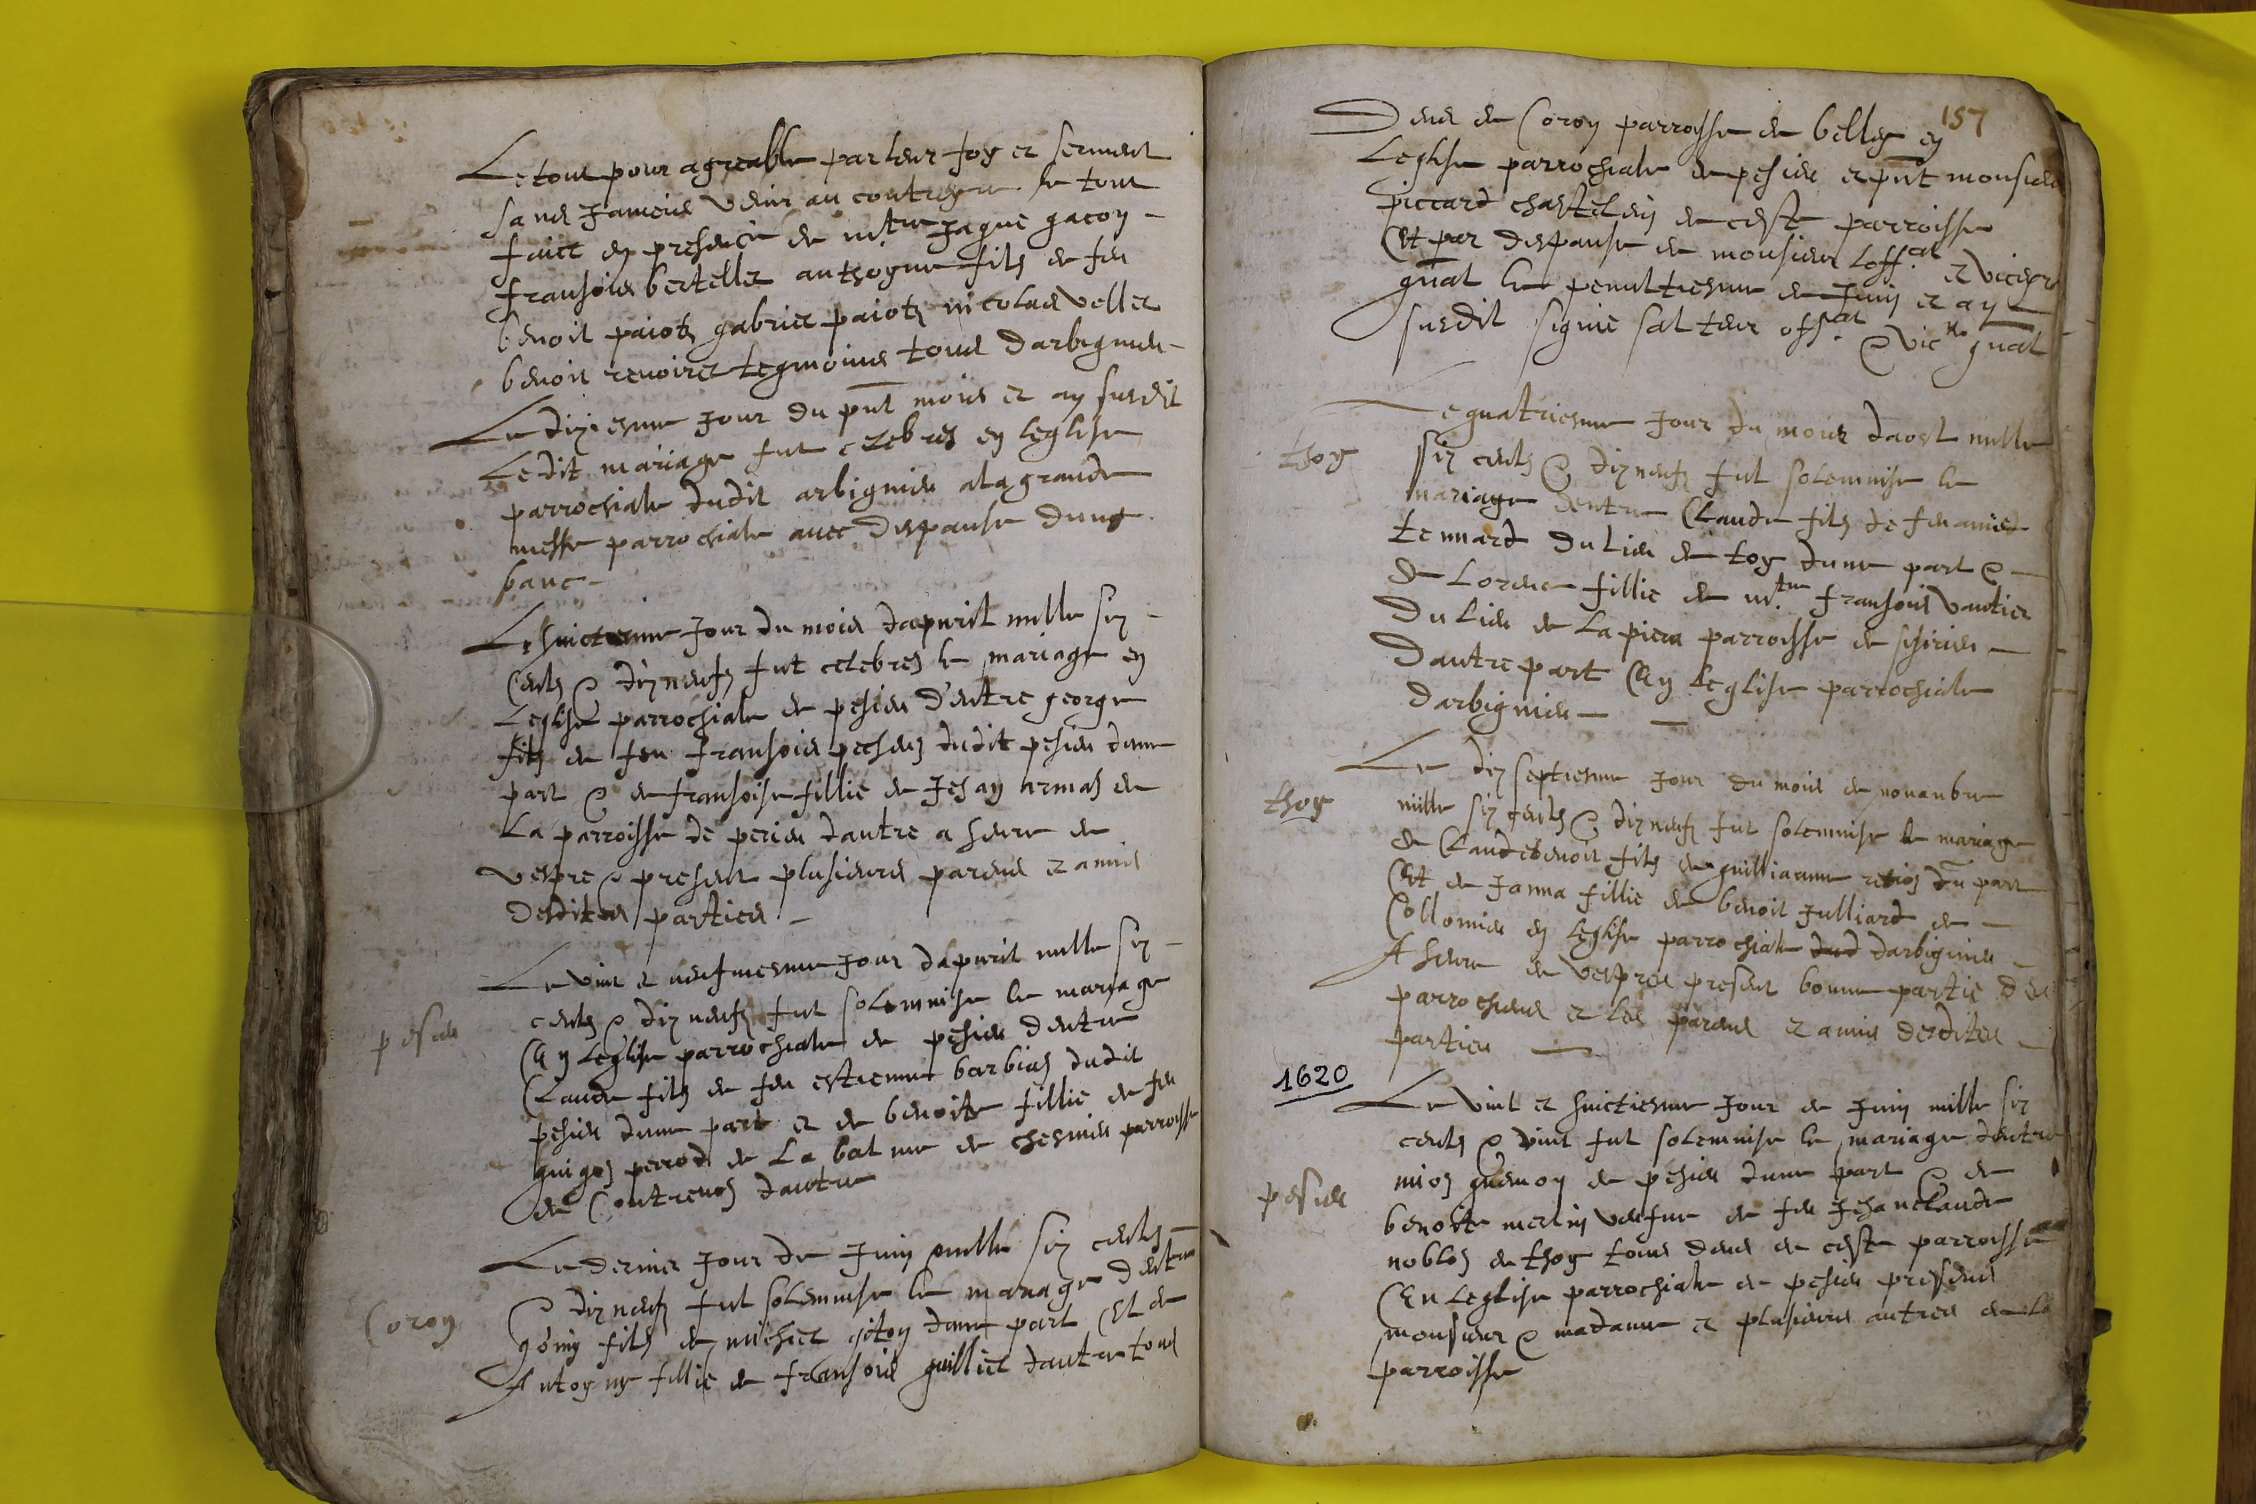 Le tout pour agreable par leur foy et serment
sans jameis venir au contreyre le tout
faict en presence de mtre Jaque gacon
fransois bertellet anthoyne filz de feu
benoit paiotz gabriel paiotz nicolas vellet
benoit renoiret tegmoins tous darbignieu
Le dixiesme jour du pnt mois et an susdit
Ledit mariage fut celebres en leglise
parrochiale dudit arbignieu a la grande
messe parrochiale avec dispanse dung
banc
Le huictiesme jour du mois dapvril mille six
cents & dix neufz fut celebres le mariage en
Leglise parrochiale de pesieu d'entre george
filz de feu fransois dudit pesieu dune
part & de fransoise fillie de Jehan de
La parroisse de perieu dautre a heure de
vespre & present plusieurs parens et amis
desdites parties
pesieu
Le vint et neufviesme jour dapvril mille six
cents & dix neufz fut solemnise le mariage
En Leglise parrochiale de pesieu dentre
Claude filz de feu estienne barbiaz dudit
pesieu dune part et de benoite fillie de feu
guigoz perrod de La balme de parroisse
de Contrevoz dautre
Coron
Le dernier jour de Juin mille six cents
& dix neufz fut solemnise le mariage dentre
filz de michiel giton dune part Et de
Antoyne fillie de fransois guilliet dautre tous
157
Deus de Coron parroisse de belley en
Leglise parrochiale de pesieu et pnt monsieur
piccard chastelein de ceste parroisse
Et par dispanse de monsieur Loffal et viceyre
gnal le penultiesme de Juin et an
susdit signie salteur offal & vicre gnal
thoy
Le quatriesme jour du mois daost mille
six cents & dix neufz fut solemnise le
mariage dentre Claude filz de feu amied
tennard du lieu de toy dune part &
de Lorence fillie de mtre fransois vautier
du lieu de La piera parroisse de
dautre part En Leglise parrochiale
darbignieu
thoy
Le dix septiesme jour du mois de novanbre
mille six cents & dix neufz fut solemnise le mariage
de Claude benoit filz de guilliaume du part
Et de Janna fillie de benoit Julliard de
Collomieu en Leglise parrochiale dud darbignieu
A heure de vespres present bonne partie des
parrochiens et les parens et amis desdites
parties
1620
pesieu
Le vint et huictiesme jour de Juin mille six
cents & vint fut solemnise le mariage dentre
mioz de pesieu dune part & de
benoite merlin veufve de feu Jehanclaude
nobloz de thoy tous deus de ceste parroisse
En Leglise parrochiale de pesieu presens
monsieur & madame et plusieurs autres de la
parroisse